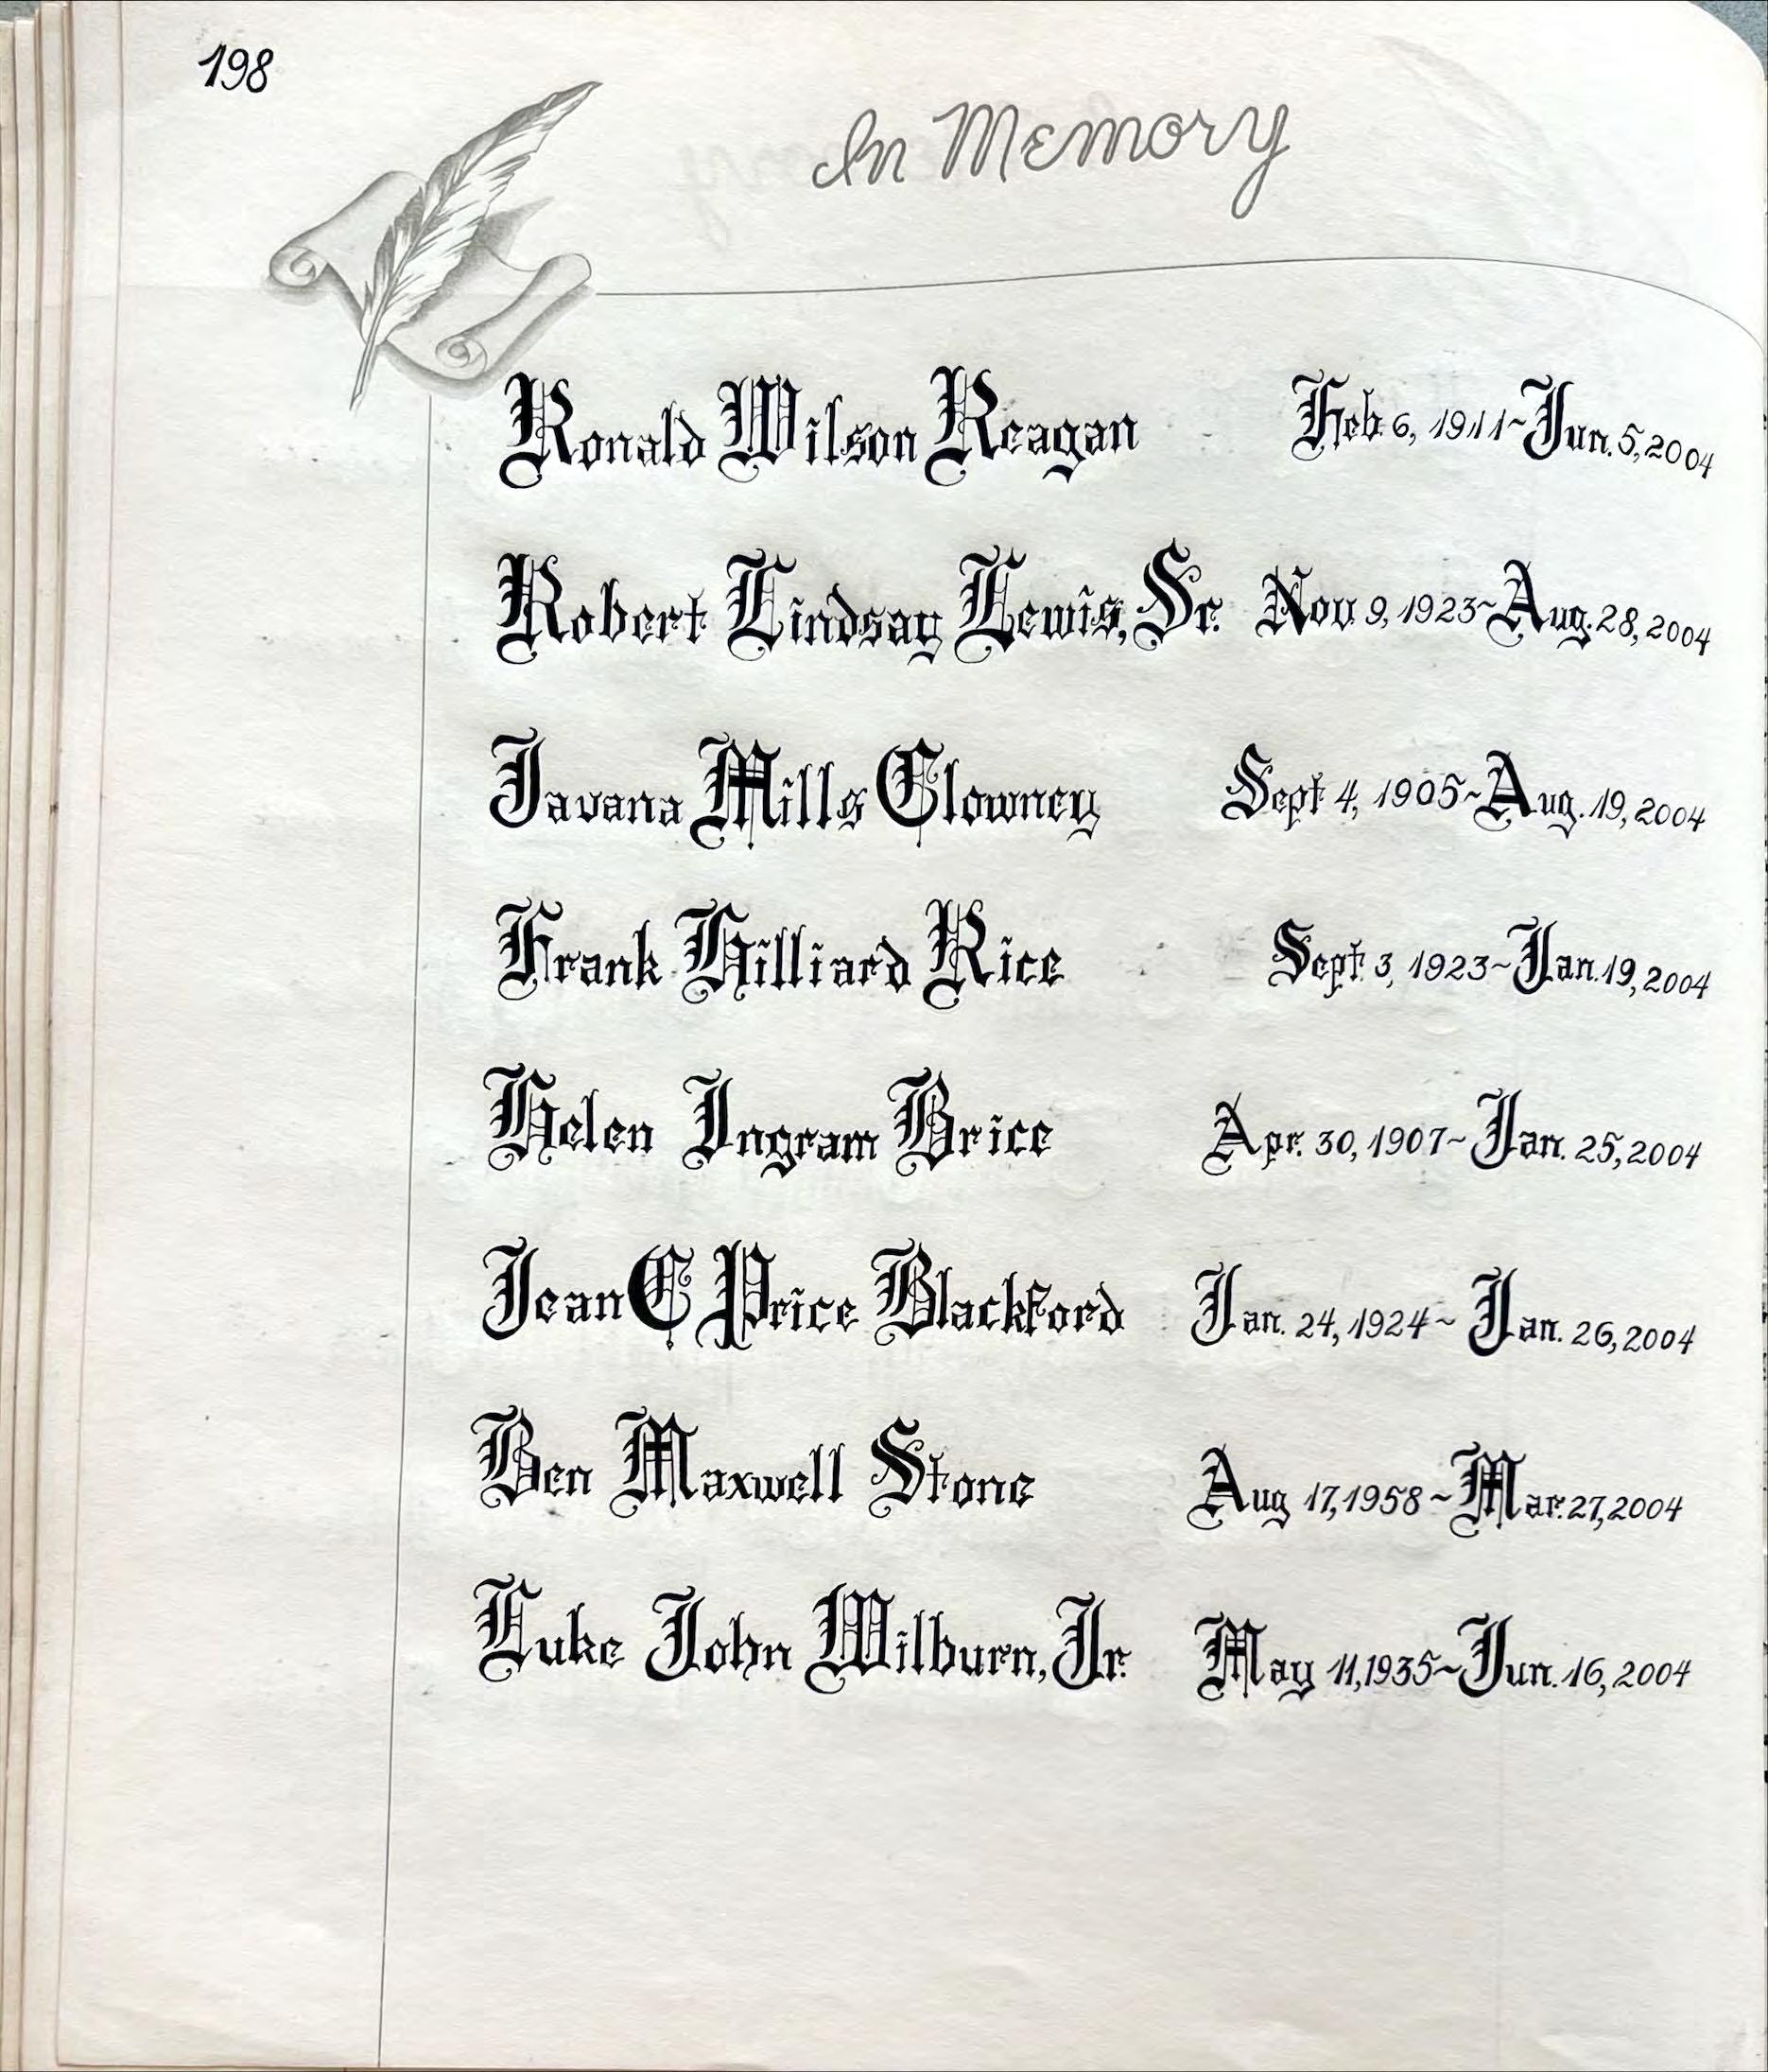 198
In Memory
Ronald Wilson Reagan Feb. 6, 1911~Jun. 5, 2004
Robert Lindsay Lewis, Sr. Nov 9, 1923~Aug. 28, 2004
Javana Mills Clowney Sept 4, 1905~Aug. 19, 2004
Frank Hilliard Rice Sept. 3, 1923~Jan. 19, 2004
Helen Ingram Brice Apr. 30, 1907~Jan. 25, 2004
Jean C Price Blackford Jan. 24, 1924~Jan. 26, 2004
Ben Maxwell Stone Aug 17, 1958~Mar. 27, 2004
Luke John Wilburn, Jr. May 11, 1935~Jun. 16, 2004